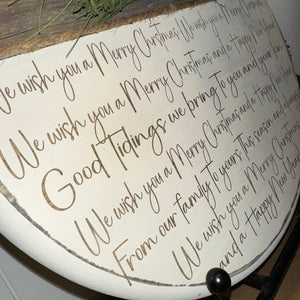 We wish you a Merry Christmas, We wish you a Merry Christmas,
We wish you a Merry Christmas and a Happy New Year
Good Tidings we bring to you and your kin
We wish you a Merry Christmas and a Happy New Year
From our family to yours this season and
We wish you a Merry Christmas
and a Happy New Year